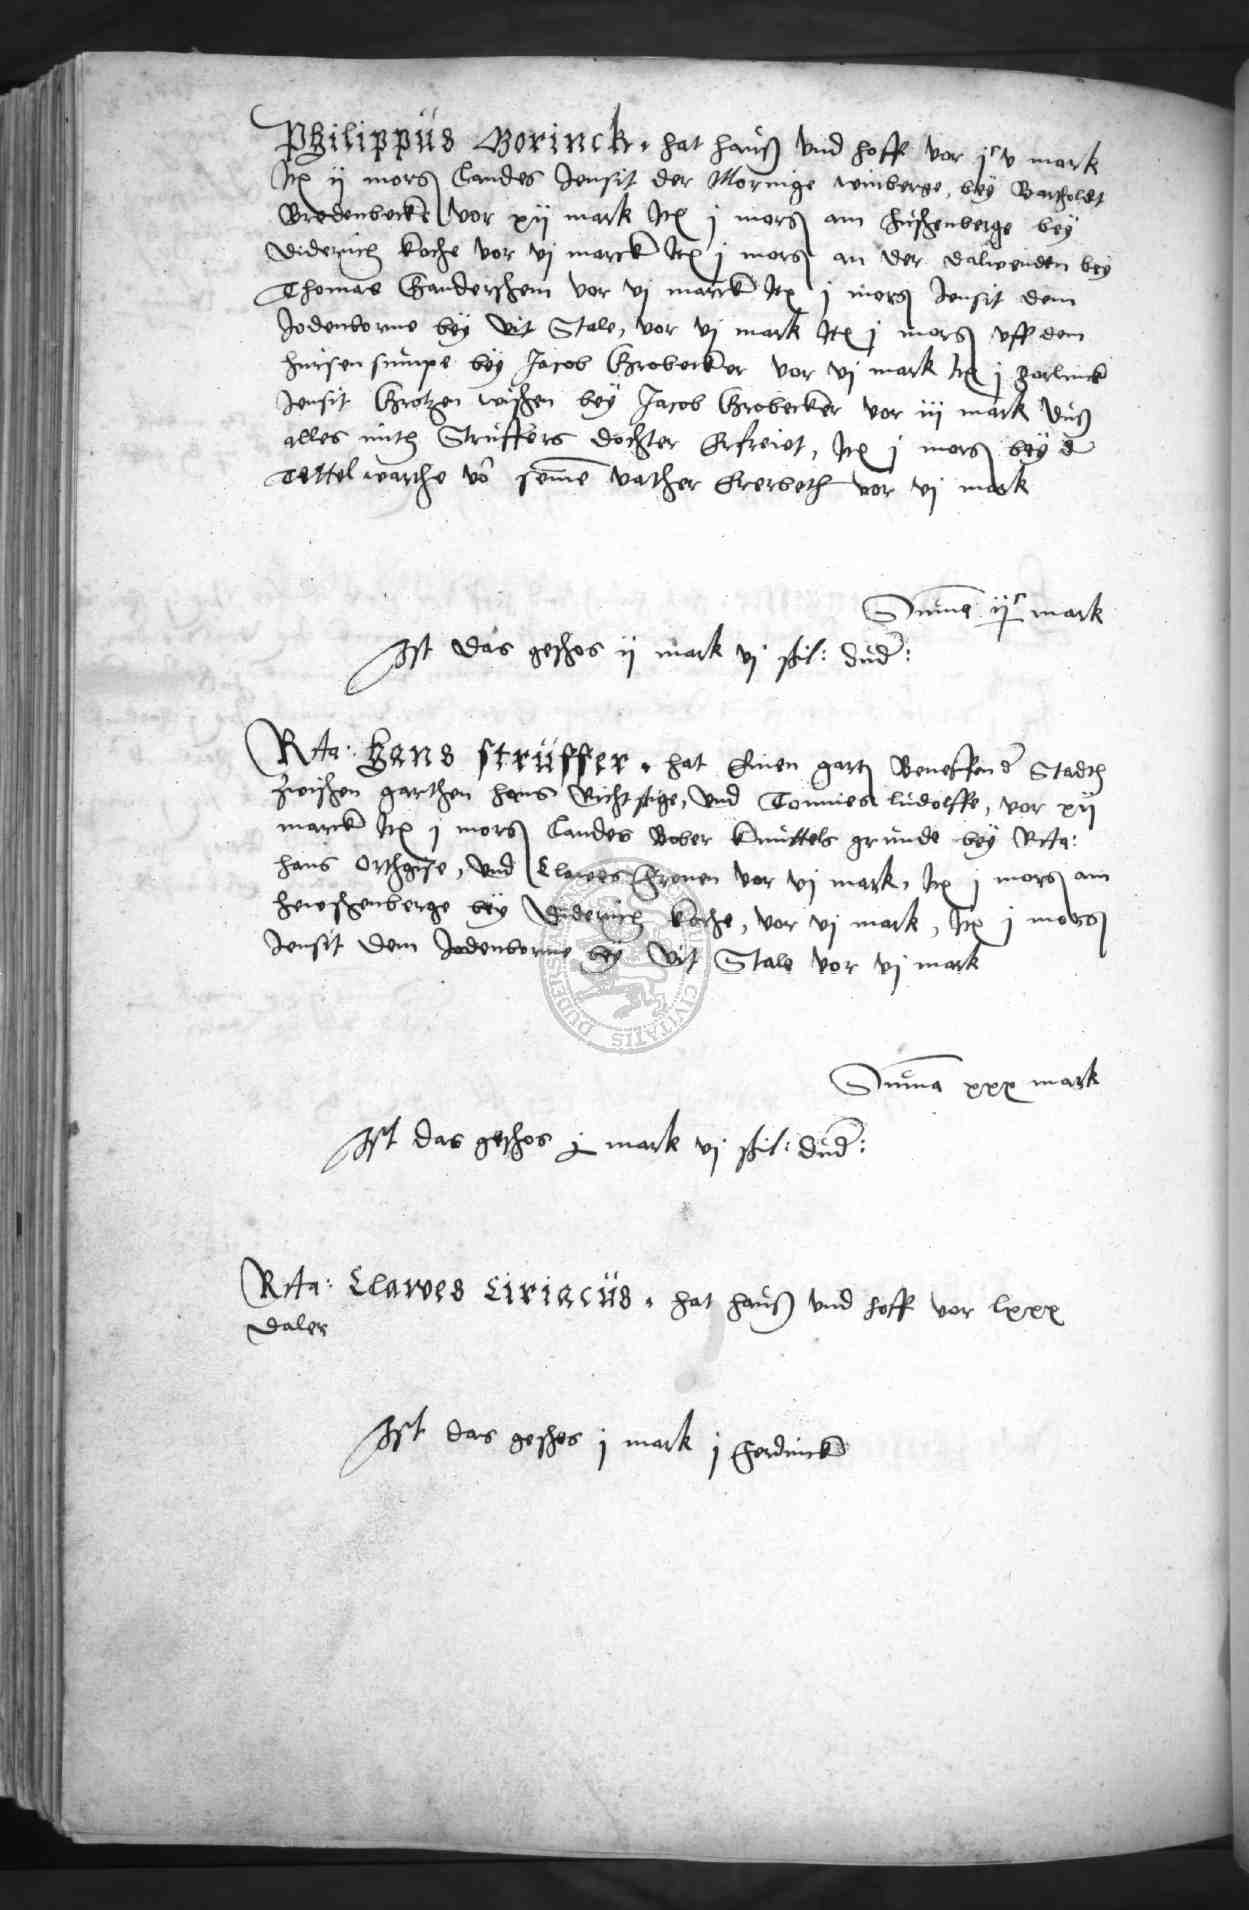 Philippus Borinck. hat hauß vnd hoff vor jc v mark
Itē ij morg Landes Jensit der Mornige winberge, bey Bartholdt
Bredenbecke vor xij mark Itē j morg am hushenberge bey
Diderich koche vor vj marck Itē j morg an der dalwenden bey
Thomas Gandershem vor vj marck Itē j morg Jensit dem
Jodenborne bey Vit Stale, vor vj mark Itē j morg vff dem
hirsensumpe bey Jacob Grobecker vor vj mark Itē j gorlinck
Jensit Grotzen wishen bey Jacob Grobecker vor iij mark Duß
alles mith Struffers dochter Erfreiet, Itē j morg bey d
Tettelwarthe vō seinne vather Ererbeth vor vj mark
Summe ijc mark
Ist das geschos ij mark vj schil: dud:
Rcta: Hans struffer. hat Einen gartē Beneffen d Stadth
Zwischen garthen hans Richtstige, vnd Tonnies ludolffe, vor xij
marck Itē j morg Landes Bober knuttels grunde bey Rcta:
hans Orthgise, vnd Clawes Fronen vor vj mark, Itē j morg am
heweshenberge bey Diderich koche, vor vj mark, Itē j morg
Jensit dem Jodenborne bey Vit Stale vor vj mark
Summa xxx mark
Ist das geschos j mark vj schil: dud:
Rcta: Clawes Ciriacus. hat hauß vnd hoff vor lxxx
daler
Ist das geschos j mark j Ferdinck
CIVITATIS DUDERS